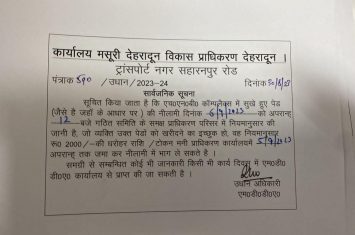 कार्यालय मसूरी देहरादून विकास प्राधिकरण देहरादून ।
ट्रांसपोर्ट नगर सहारनपुर रोड
पत्रांक 590 /उधान/2023-24 दिनांक 30/8/23
सार्वजनिक सूचना
सूचित किया जाता है कि एच०एन०बी० कॉम्पलैक्स में सुखे हुए पेड
(जैसे है जहॉ के आधार पर) की नीलामी दिनांक 6/9/2023 को अपरान्ह
12 बजे गठित समिति के समक्ष प्राधिकरण परिसर में नियमानुसार की
जानी है, जो व्यक्ति उक्त पेडो को खरीदने का इच्छुक हो, वह नियमानुसार
रू0 2000/-की धरोहर राशि /टोकन मनी प्राधिकरण कार्यालयमें 5/9/2023
अपरान्ह तक जमा कर नीलामी में भाग ले सकते है ।
समग्री से सम्बन्धित कोई भी जानकारी किसी भी कार्य दिवस में एम०डी०
डी०ए० कार्यालय से प्राप्त की जा सकती है ।
उधान अधिकारी
एम०डी०डी०ए०